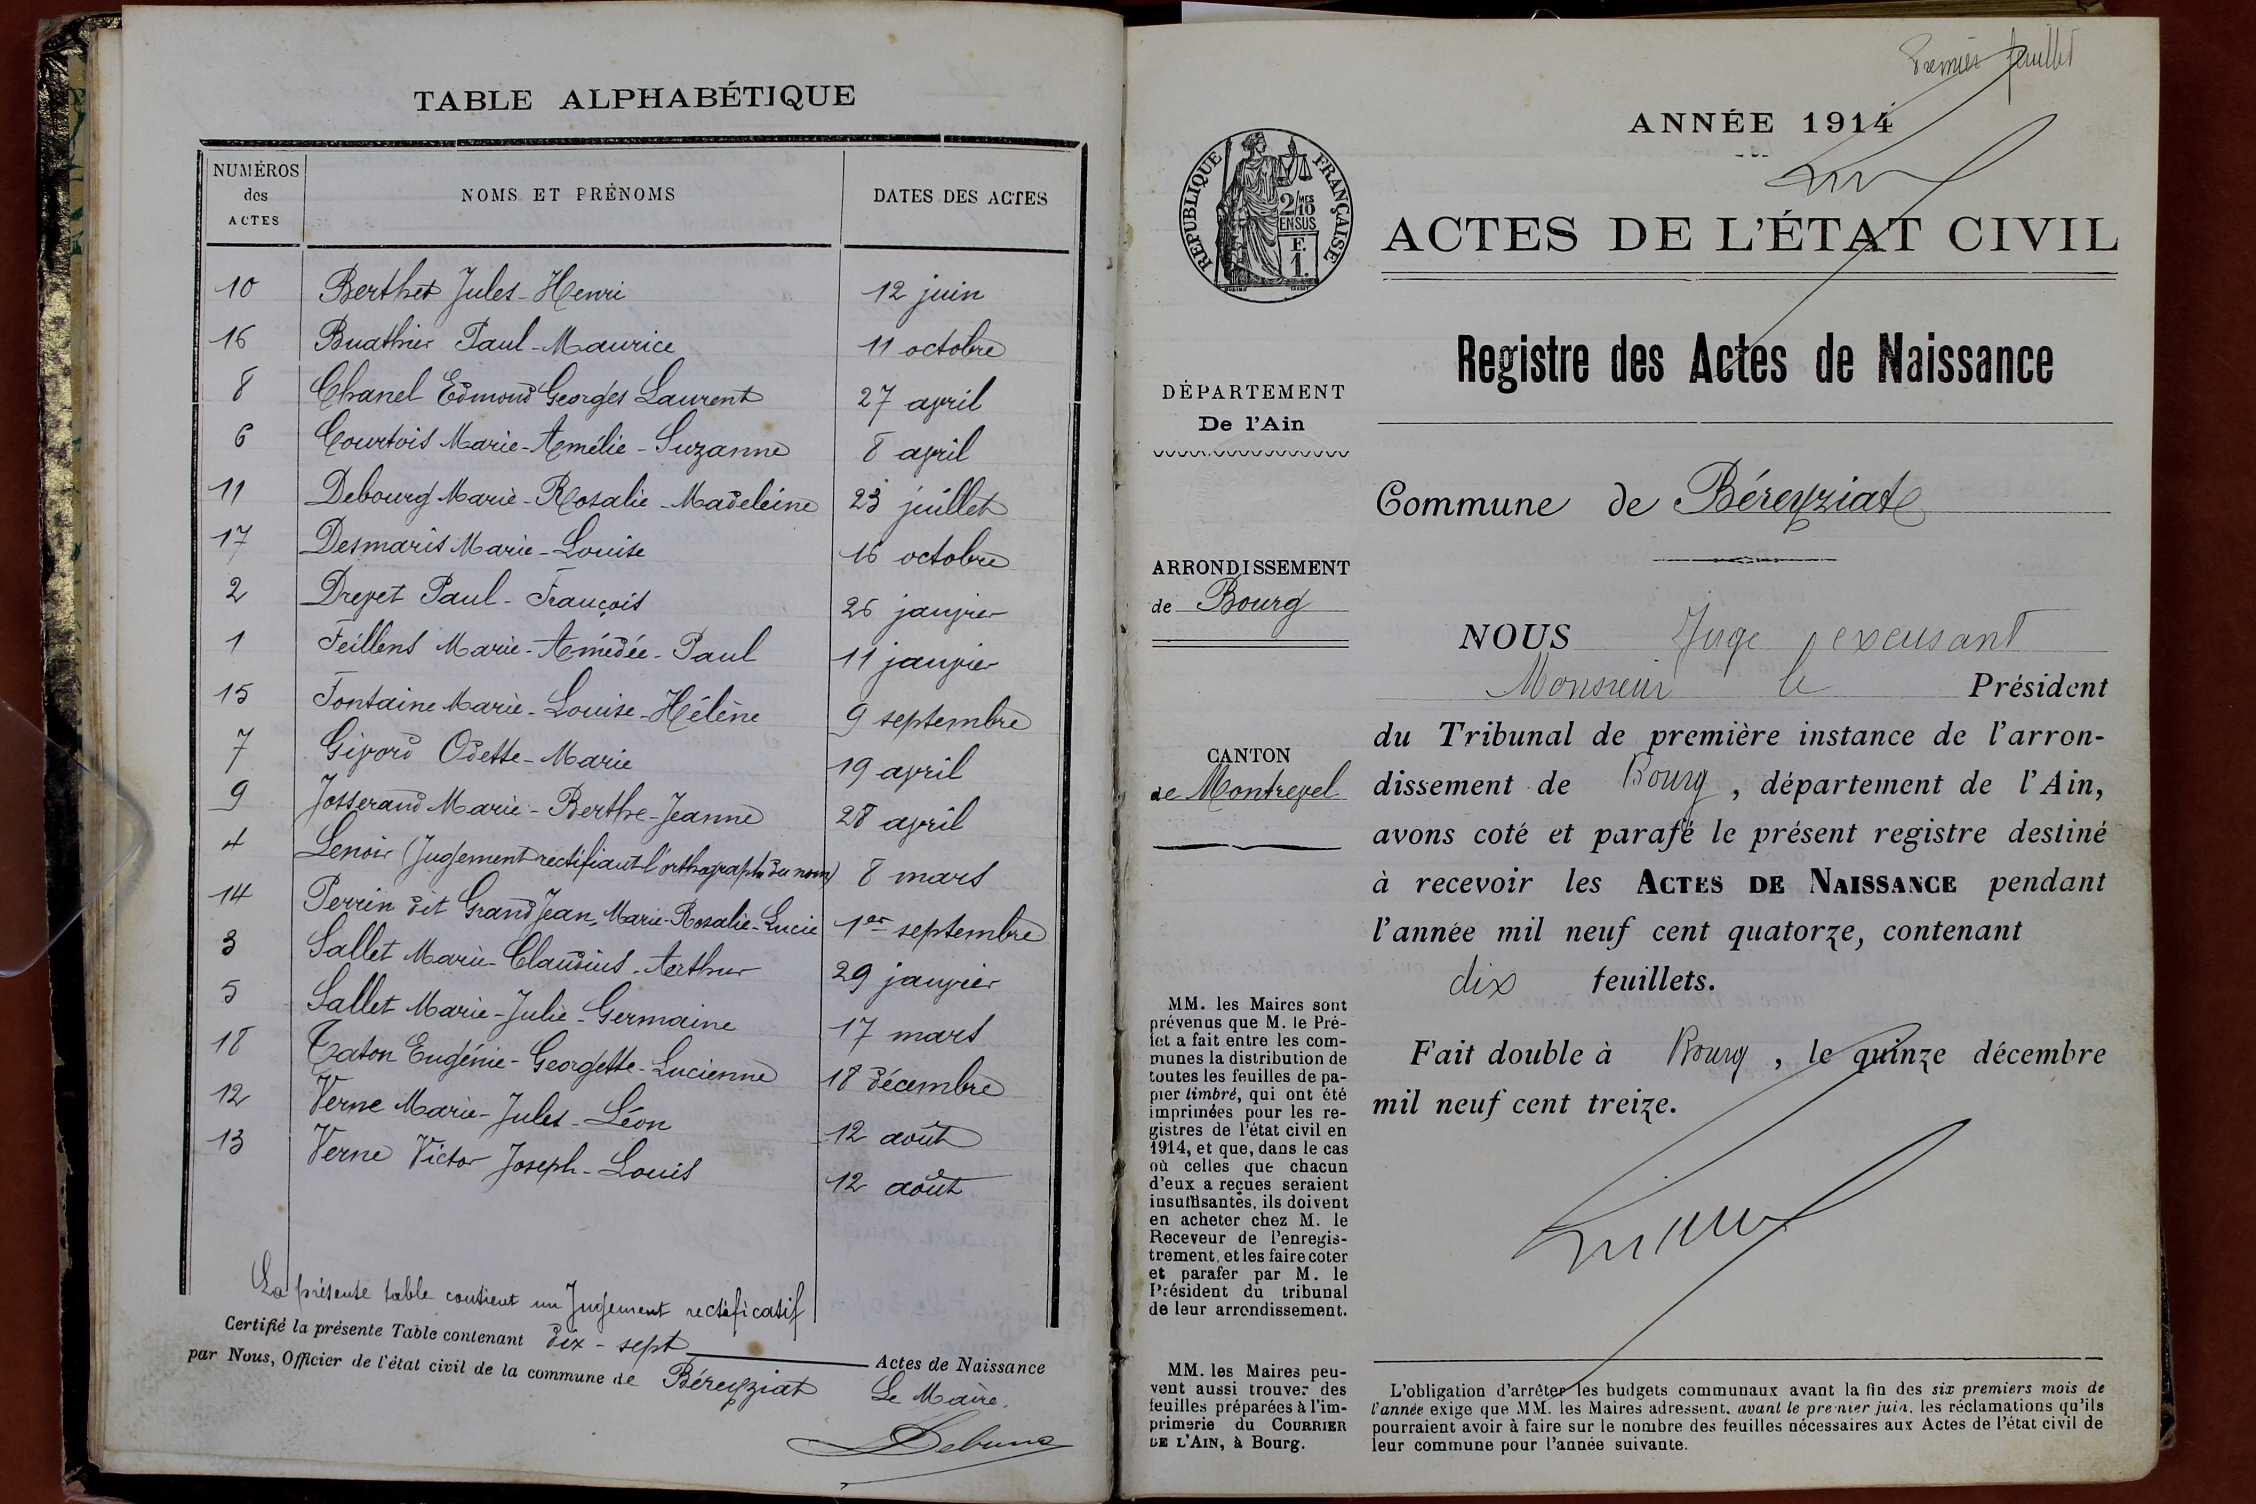 TABLE ALPHABÉTIQUE
NUMÉROS des ACTES
NOMS ET PRÉNOMS
DATES DES ACTES
10 Berthet Jules-Henri 12 juin
16 Buathier Paul-Maurice 11 octobre
8 Chanel Edmond Georges Laurent 27 avril
6 Courtois Marie-Amélie-Suzanne 8 avril
11 Debourg Marie-Rosalie-Madeleine 23 juillet
17 Desmaris Marie-Louise 16 octobre
2 Drevet Paul-François 26 janvier
1 Feillens Marie-Amédée-Paul 11 janvier
15 Fontaine Marie-Louise-Hélène 9 septembre
7 Givord Odette-Marie 19 avril
9 Josserand Marie-Berthe-Jeanne 28 avril
4 Lenoir (Jugement rectifiant l'orthographe du nom) 8 mars
14 Perrin dit Grand Jean, Marie-Rosalie-Lucie 1er septembre
3 Sallet Marie-Claudius-Arthur 29 janvier
5 Sallet Marie-Julie-Germaine 17 mars
18 Taton Eugénie-Georgette-Lucienne 18 décembre
12 Verne Marie-Jules-Léon 12 août
13 Verne Victor Joseph-Louis 12 août
La présente table contient un Jugement rectificatif
Certifié la présente Table contenant dix-sept Actes de Naissance
par Nous, Officier de l'état civil de la commune de Béreyziat
Le Maire,
Premier feuillet
ANNÉE 1914
RÉPUBLIQUE FRANÇAISE
2/MES 10
EN SUS
F.
1.
ACTES DE L'ÉTAT CIVIL
Registre des Actes de Naissance
DÉPARTEMENT
De l'Ain
Commune de Béreyziat
ARRONDISSEMENT
de Bourg
CANTON
de Montrevel
NOUS Juge excusant
Monsieur le Président
du Tribunal de première instance de l'arron-
dissement de Bourg, département de l'Ain,
avons coté et parafé le présent registre destiné
à recevoir les ACTES DE NAISSANCE pendant
l'année mil neuf cent quatorze, contenant
dix feuillets.
Fait double à Bourg, le quinze décembre
mil neuf cent treize.
MM. les Maires sont
prévenus que M. le Pré-
fet a fait entre les com-
munes la distribution de
toutes les feuilles de pa-
pier timbré, qui ont été
imprimées pour les re-
gistres de l'état civil en
1914, et que, dans le cas
où celles que chacun
d'eux a reçues seraient
insuffisantes, ils doivent
en acheter chez M. le
Receveur de l'enregis-
trement, et les faire coter
et parafer par M. le
Président du tribunal
de leur arrondissement.
MM. les Maires peu-
vent aussi trouver des
feuilles préparées à l'im-
primerie du COURRIER
DE L'AIN, à Bourg.
L'obligation d'arrêter les budgets communaux avant la fin des six premiers mois de
l'année exige que MM. les Maires adressent, avant le premier juin, les réclamations qu'ils
pourraient avoir à faire sur le nombre des feuilles nécessaires aux Actes de l'état civil de
leur commune pour l'année suivante.